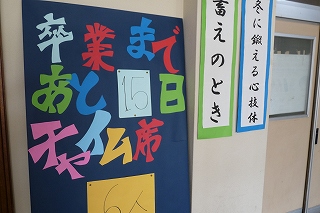 卒業まで
あと15日
チャイム席
6人
蓄えのとき
冬に鍛える心技体